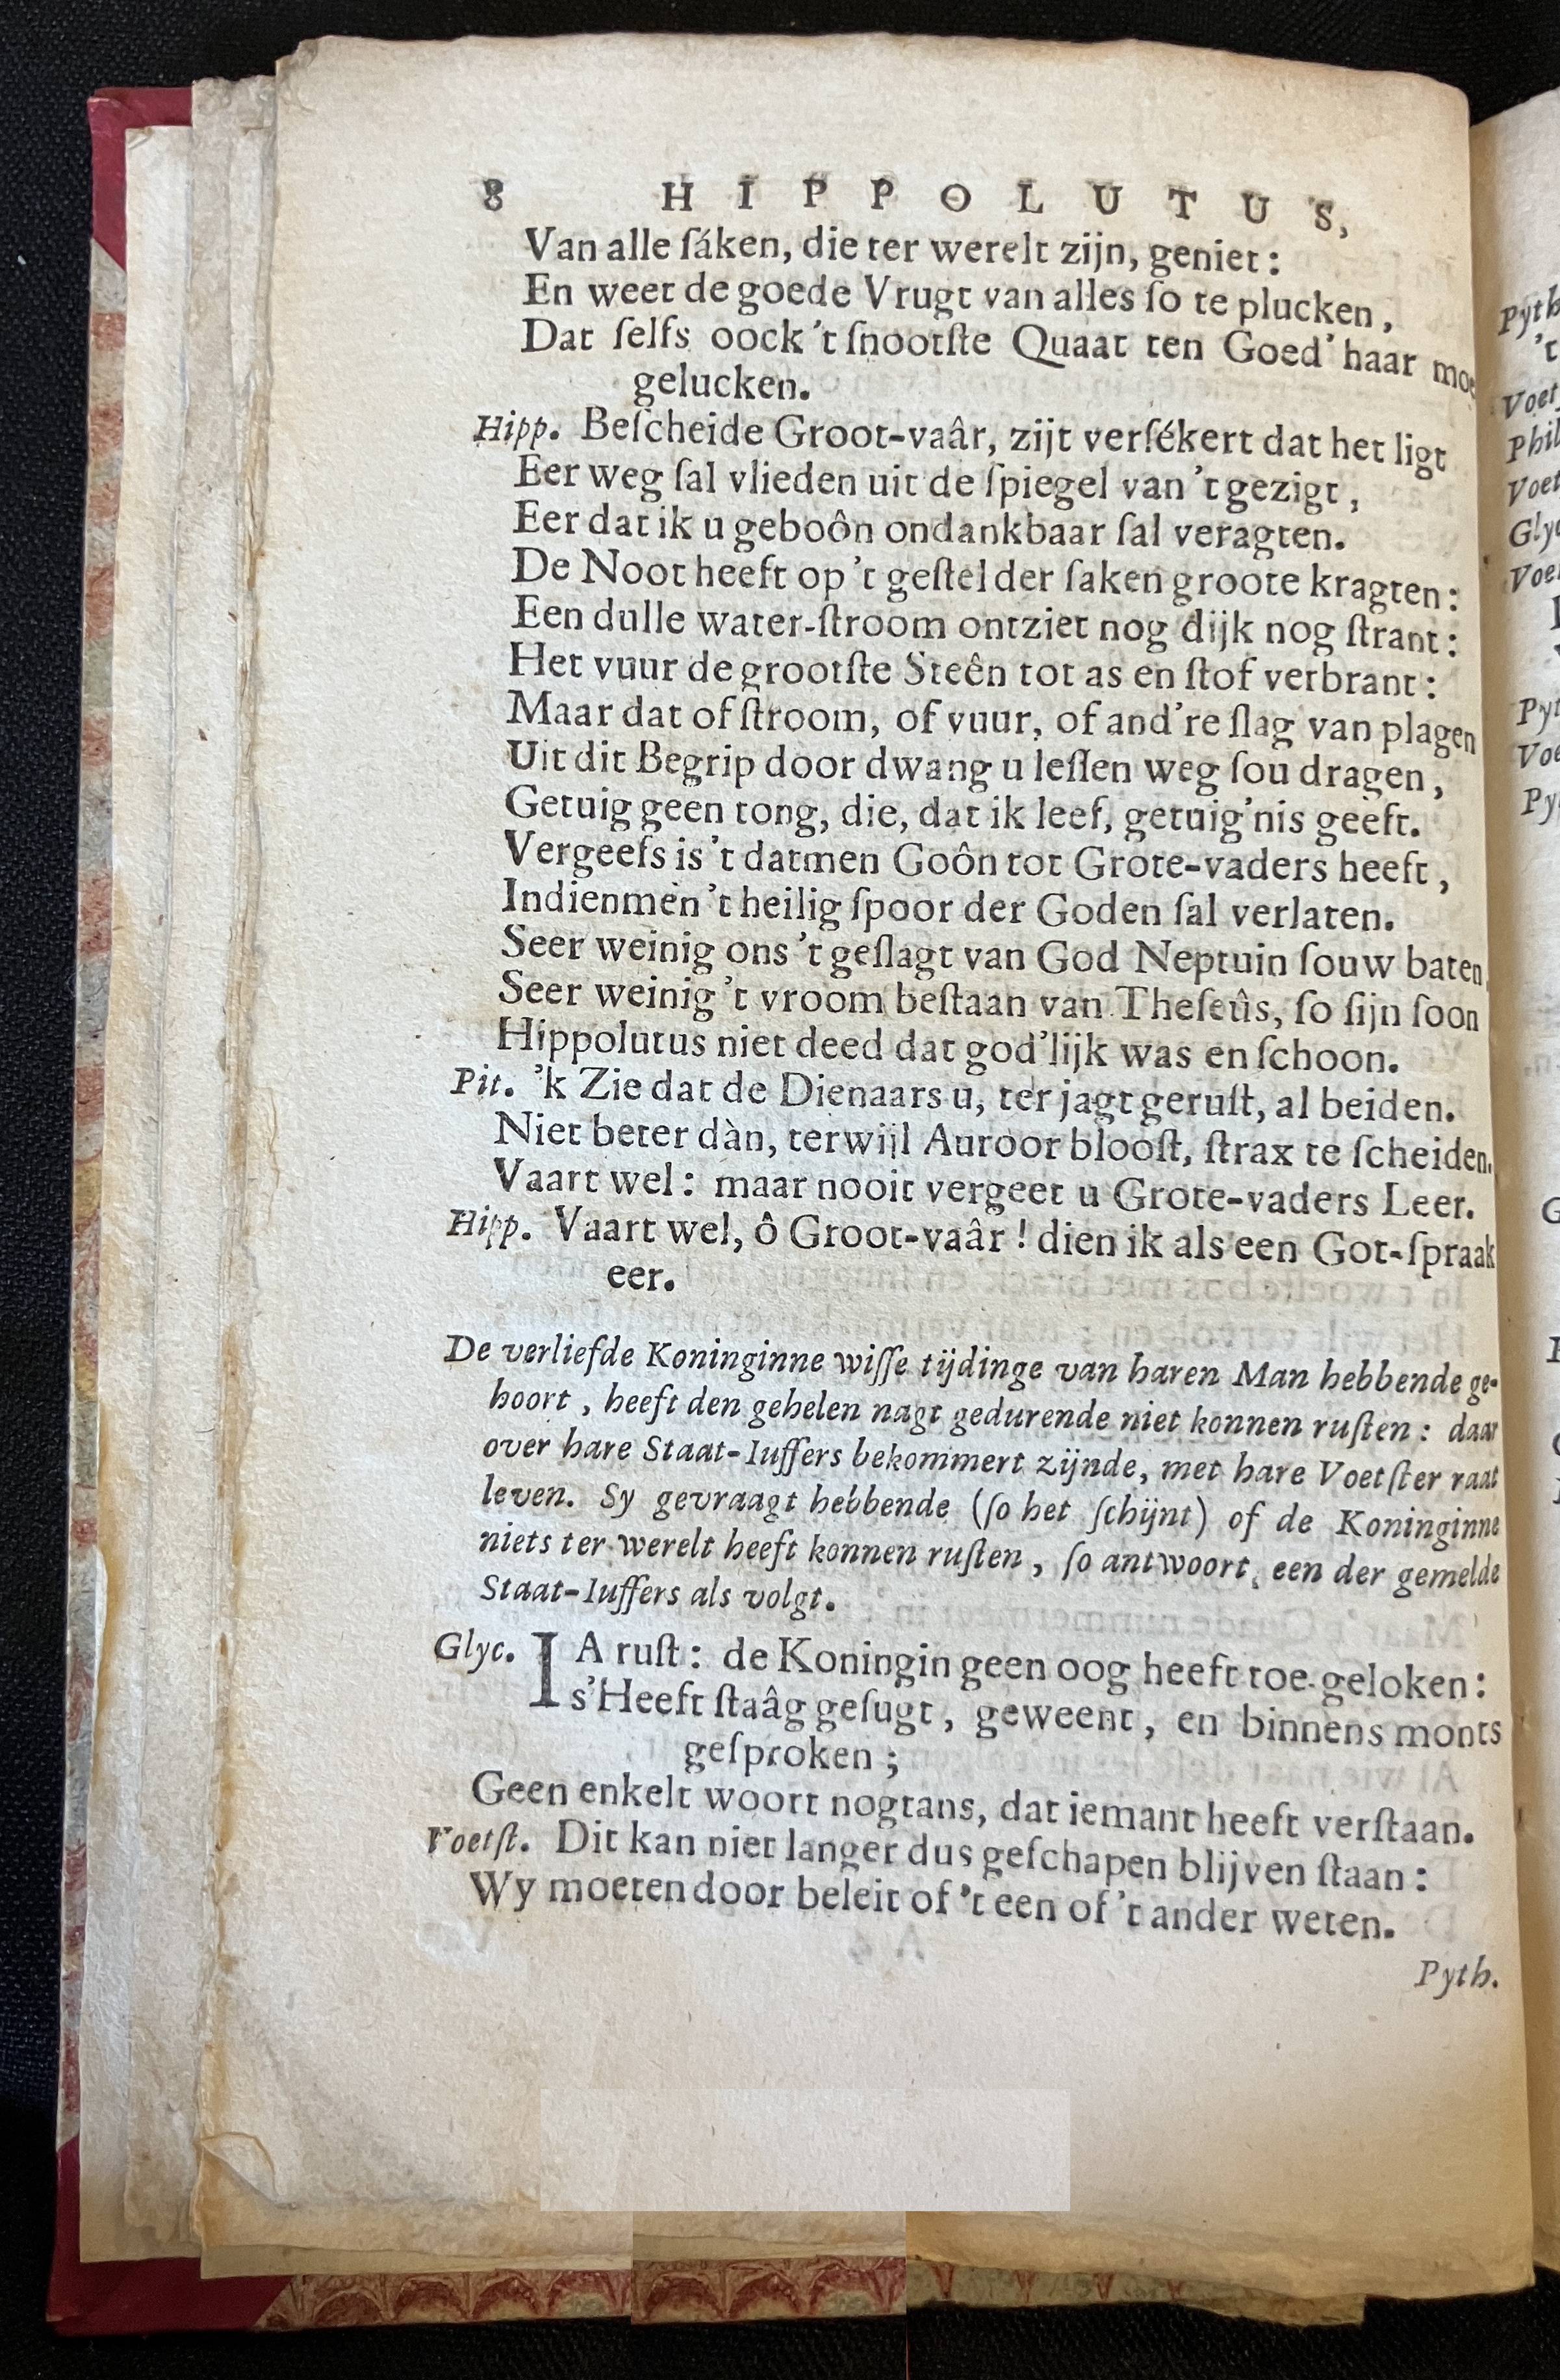 8 HIPPOLUTUS,
Van alle ſáken, die ter werelt zijn, geniet:
En weet de goede Vrugt van alles ſo te plucken,
Dat ſelfs oock 't ſnootſte Quaat ten Goed' haar
gelucken.
Hipp. Beſcheide Groot-vaâr, zijt verſékert dat het ligt
Eer weg ſal vlieden uit de ſpiegel van 't gezigt,
Eer dat ik u geboôn ondankbaar ſal veragten.
De Noot heeft op 't geſtel der ſaken groote kragten:
Een dulle water-ſtroom ontziet nog dijk nog ſtrant:
Het vuur de grootſte Steên tot as en ſtof verbrant:
Maar dat of ſtroom, of vuur, of and're ſlag van plagen
Uit dit Begrip door dwang u leſſen weg ſou dragen,
Getuig geen tong, die, dat ik leef, getuig'nis geeft.
Vergeefs is 't datmen Goôn tot Grote-vaders heeft,
Indienmen 't heilig ſpoor der Goden ſal verlaten.
Seer weinig ons 't geſlagt van God Neptuin ſouw baten,
Seer weinig 't vroom beſtaan van Theſeûs, ſo ſijn ſoon
Hippolutus niet deed dat god'lijk was en ſchoon.
Pit. 'k Zie dat de Dienaars u, ter jagt geruſt, al beiden.
Niet beter dàn, terwijl Auroor blooſt, ſtrax te ſcheiden.
Vaart wel: maar nooit vergeet u Grote-vaders Leer.
Hipp. Vaart wel, ô Groot-vaâr! dien ik als een Got-ſpraak
eer.
De verliefde Koninginne wiſſe tijdinge van haren Man hebbende ge-
hoort, heeft den gehelen nagt gedurende niet konnen ruſten: daar
over hare Staat-Iuffers bekommert zijnde, met hare Voetſter raat
leven. Sy gevraagt hebbende (ſo het ſchijnt) of de Koninginne
niets ter werelt heeft konnen ruſten, ſo antwoort, een der gemelde
Staat-Iuffers als volgt.
Glyc. IA ruſt: de Koningin geen oog heeft toe-geloken:
s'Heeft ſtaâg geſugt, geweent, en binnens monts
geſproken;
Geen enkelt woort nogtans, dat iemant heeft verſtaan.
Voetſt. Dit kan niet langer dus geſchapen blijven ſtaan:
Wy moeten door beleit of 't een of 't ander weten.
Pyth.
Pyth
't
Voet
Phil
Voet
Glyc
Voet
Pyt
Voe
Py